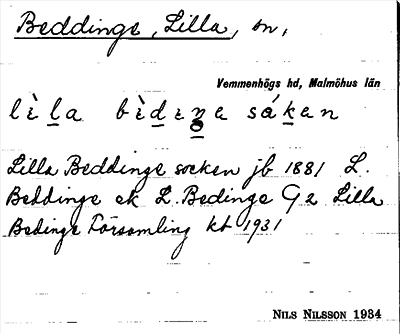 Beddinge, Lilla, sn,
Vemmenhögs hd, Malmöhus län
lὶla bὶdiŋe sákan
Lilla Beddinge socken jb 1881 L.
Beddinge ek L. Bedinge G 2 Lilla
Bedinge Församling kt 1931
NILS NILSSON 1934